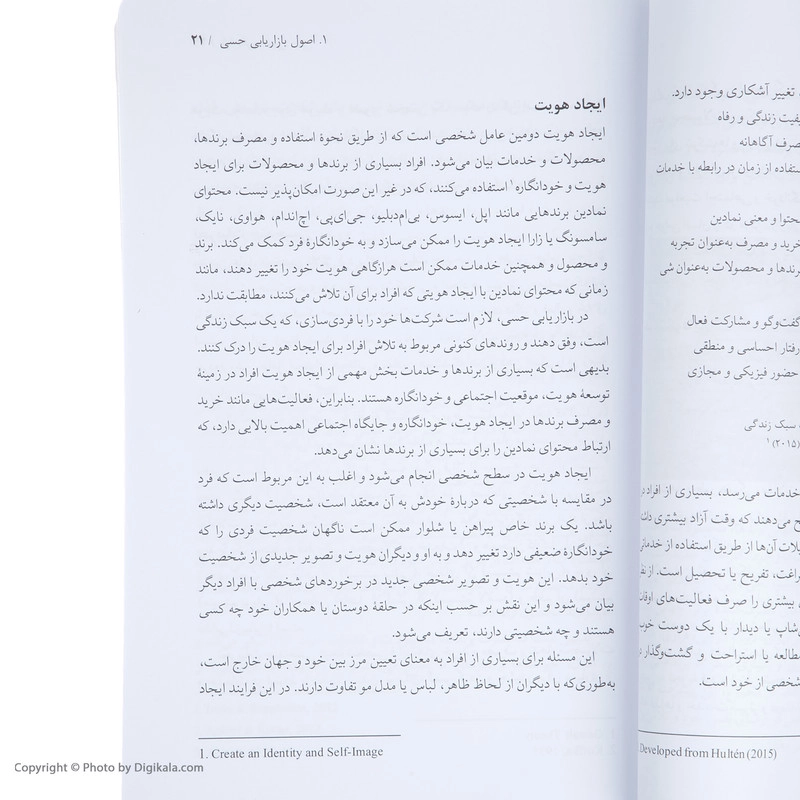 ۱. اصول بازاریابی حسی / ۲۱
ایجاد هویت
ایجاد هویت دومین عامل شخصی است که از طریق نحوهٔ استفاده و مصرف برندها،
محصولات و خدمات بیان می‌شود. افراد بسیاری از برندها و محصولات برای ایجاد
هویت و خودانگاره۱ استفاده می‌کنند، که در غیر این صورت امکان‌پذیر نیست. محتوای
نمادین برندهایی مانند اپل، ایسوس، بی‌ام‌دبلیو، جی‌ای‌پی، اچ‌اندام، هواوی، نایک،
سامسونگ یا زارا ایجاد هویت را ممکن می‌سازد و به خودانگارهٔ فرد کمک می‌کند. برند
و محصول و همچنین خدمات ممکن است هرازگاهی هویت خود را تغییر دهند، مانند
زمانی که محتوای نمادین با ایجاد هویتی که افراد برای آن تلاش می‌کنند، مطابقت ندارد.
در بازاریابی حسی، لازم است شرکت‌ها خود را با فردی‌سازی، که یک سبک زندگی
است، وفق دهند و روندهای کنونی مربوط به تلاش افراد برای ایجاد هویت را درک کنند.
بدیهی است که بسیاری از برندها و خدمات بخش مهمی از ایجاد هویت افراد در زمینهٔ
توسعهٔ هویت، موقعیت اجتماعی و خودانگاره هستند. بنابراین، فعالیت‌هایی مانند خرید
و مصرف برندها در ایجاد هویت، خودانگاره و جایگاه اجتماعی اهمیت بالایی دارد، که
ارتباط محتوای نمادین را برای بسیاری از برندها نشان می‌دهد.
ایجاد هویت در سطح شخصی انجام می‌شود و اغلب به این مربوط است که فرد
در مقایسه با شخصیتی که دربارهٔ خودش به آن معتقد است، شخصیت دیگری داشته
باشد. یک برند خاص پیراهن یا شلوار ممکن است ناگهان شخصیت فردی را که
خودانگارهٔ ضعیفی دارد تغییر دهد و به او و دیگران هویت و تصویر جدیدی از شخصیت
خود بدهد. این هویت و تصویر شخصی جدید در برخوردهای شخصی با افراد دیگر
بیان می‌شود و این نقش بر حسب اینکه در حلقهٔ دوستان یا همکاران خود چه کسی
هستند و چه شخصیتی دارند، تعریف می‌شود.
این مسئله برای بسیاری از افراد به معنای تعیین مرز بین خود و جهان خارج است،
به‌طوری‌که با دیگران از لحاظ ظاهر، لباس یا مدل مو تفاوت دارند. در این فرایند ایجاد
1. Create an Identity and Self-Image
تغییر آشکاری وجود دارد.
کیفیت زندگی و رفاه
مصرف آگاهانه
استفاده از زمان در رابطه با خدمات
محتوا و معنی نمادین
خرید و مصرف به‌عنوان تجربه
برندها و محصولات به‌عنوان شی
گفت‌وگو و مشارکت فعال
رفتار احساسی و منطقی
حضور فیزیکی و مجازی
سبک زندگی
(۲۰۱۵)۱
خدمات می‌رسد، بسیاری از افراد
می‌دهند که وقت آزاد بیشتری
آن‌ها از طریق استفاده از
تفریح یا تحصیل است.
بیشتری را صرف فعالیت‌های
یا دیدار با یک دوست
مطالعه یا استراحت و گشت‌وگذار
شخصی از خود است.
Developed from Hultén (2015)
Copyright © Photo by Digikala.com